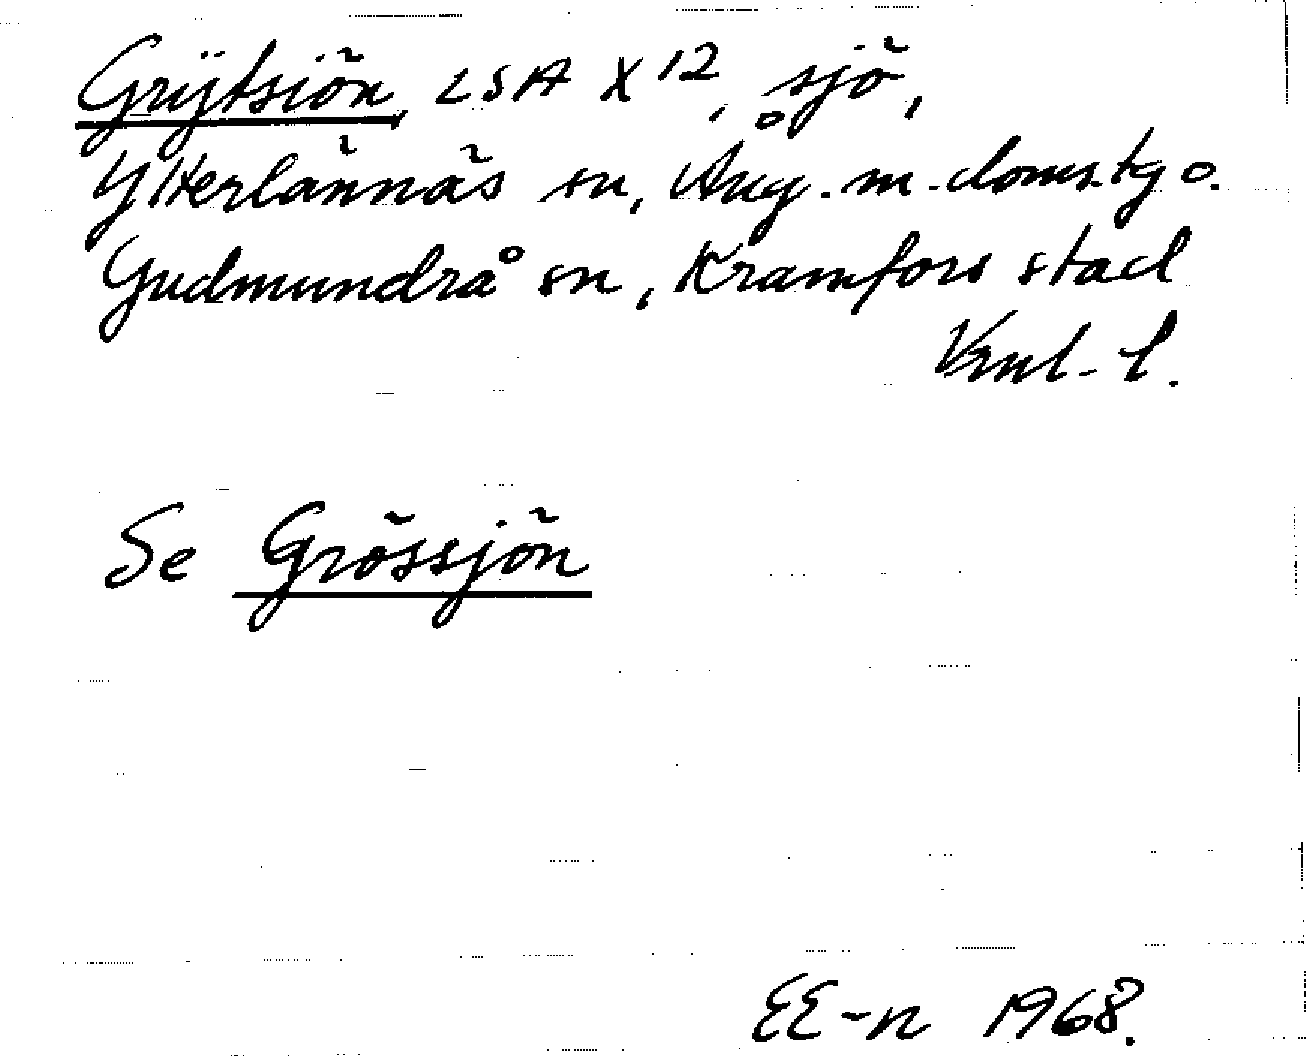 Grÿtsiön, LSA X 12, sjö,
Ytterlännäs sn, Ång. m. doms.tg o.
Gudmundrå sn, Kramfors stad
Vnl. l.
Se Grössjön
EE-n 1968.